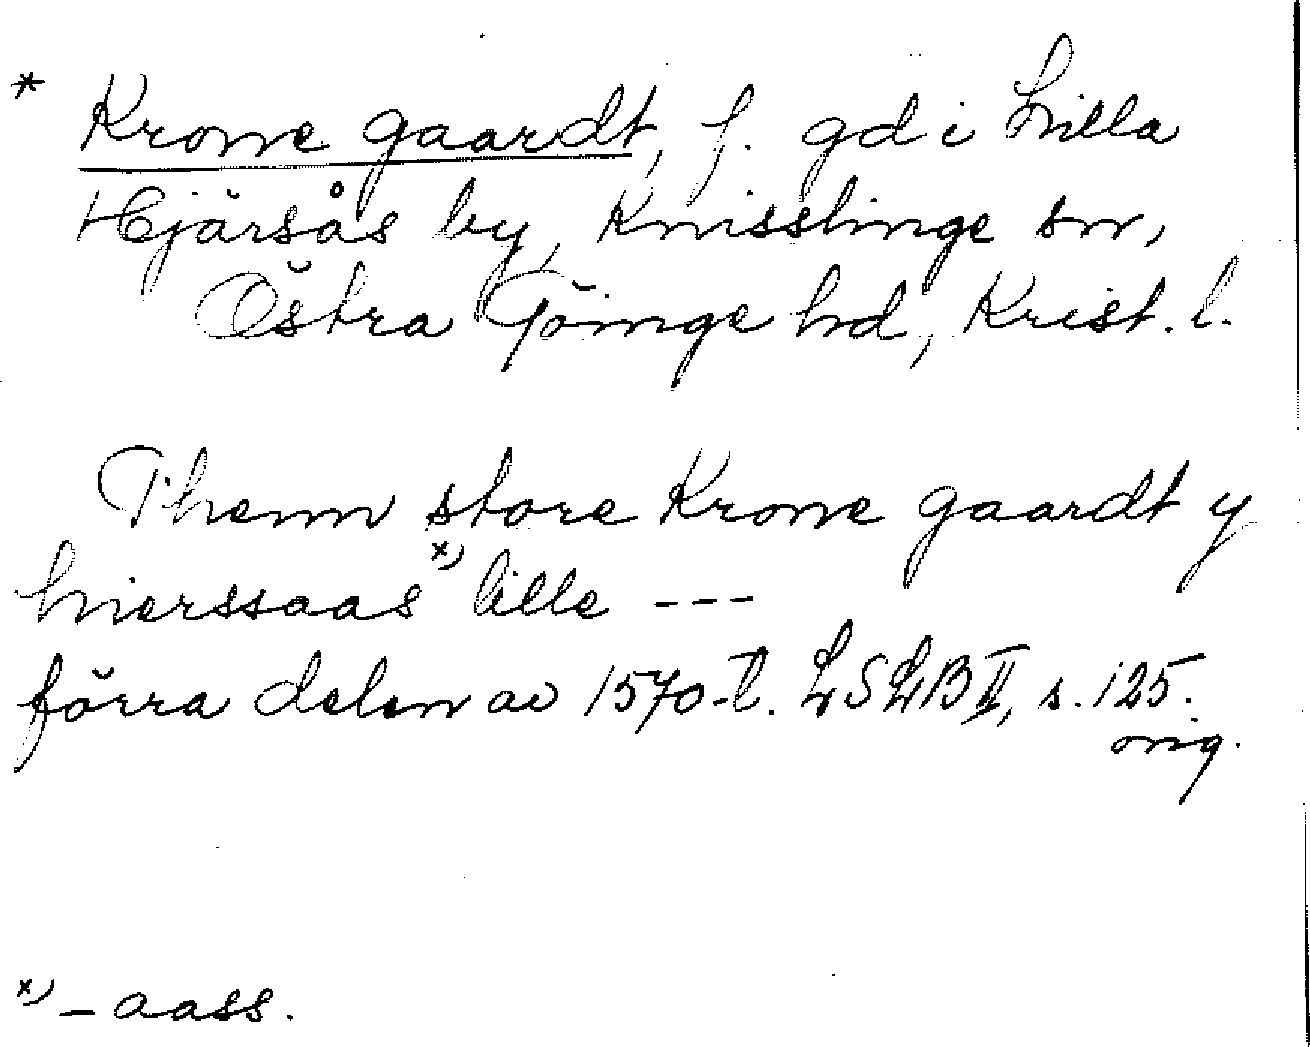 * Krone gaardt, f. gd i Lilla
Hjärsås by, Knisslinge sn,
Östra Göinge hd, Krist. l.
Thenn store Krone gaardt y
hierssaas x) lille ---
förra delen av 1570-t. LSLB II, s. 125.
orig.
x) -aass.